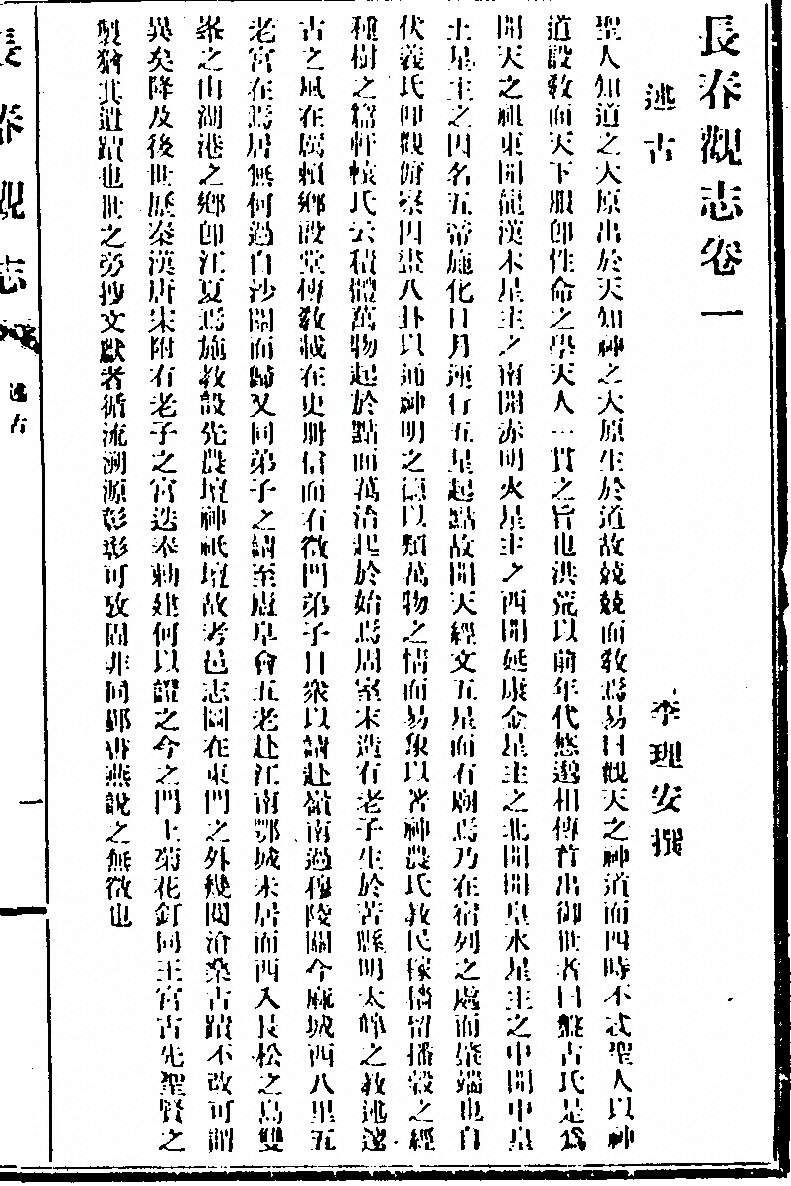 長春觀志卷一
述古
李理安撰
聖人知道之大原出於天知神之大原生於道故兢兢而敎焉易曰觀天之神道而四時不忒聖人以神
道設敎而天下服卽性命之學天人一貫之旨也洪荒以前年代悠邈相傳首出御世者曰盤古氏是爲
開天之祖東開龍漢木星主之南開赤明火星主之西開延康金星主之北開開皇水星主之中開中皇
土星主之因名五帝施化日月運行五星起點故開天經文五星而有廟焉乃在宿列之處而發端也自
伏羲氏仰觀俯察因畫八卦以通神明之德以類萬物之情而易象以著神農氏敎民稼穡留播穀之經
種樹之篇軒轅氏云積體萬物起於點而萬治起於始焉周室末造有老子生於苦縣明太皥之敎述邃
古之風在厲賴鄉設堂傳敎載在史册信而有徵門弟子日衆以請赴嶺南過穆陵關今麻城西八里五
老宮在焉居無何過白沙關而歸又同弟子之請至廬阜會五老赴江南鄂城未居而西入長松之島雙
峯之山湖港之鄉卽江夏焉施敎設先農壇神祇壇故考邑志圖在東門之外幾閱滄桑古蹟不改可謂
異矣降及後世歷秦漢唐宋附有老子之宮迭奉勅建何以證之今之門上菊花釘同王宮古先聖賢之
製猶其遺蹟也世之旁抄文獻者循流溯源彰彰可攷固非同郢書燕說之無徵也
長春觀志
述古
一